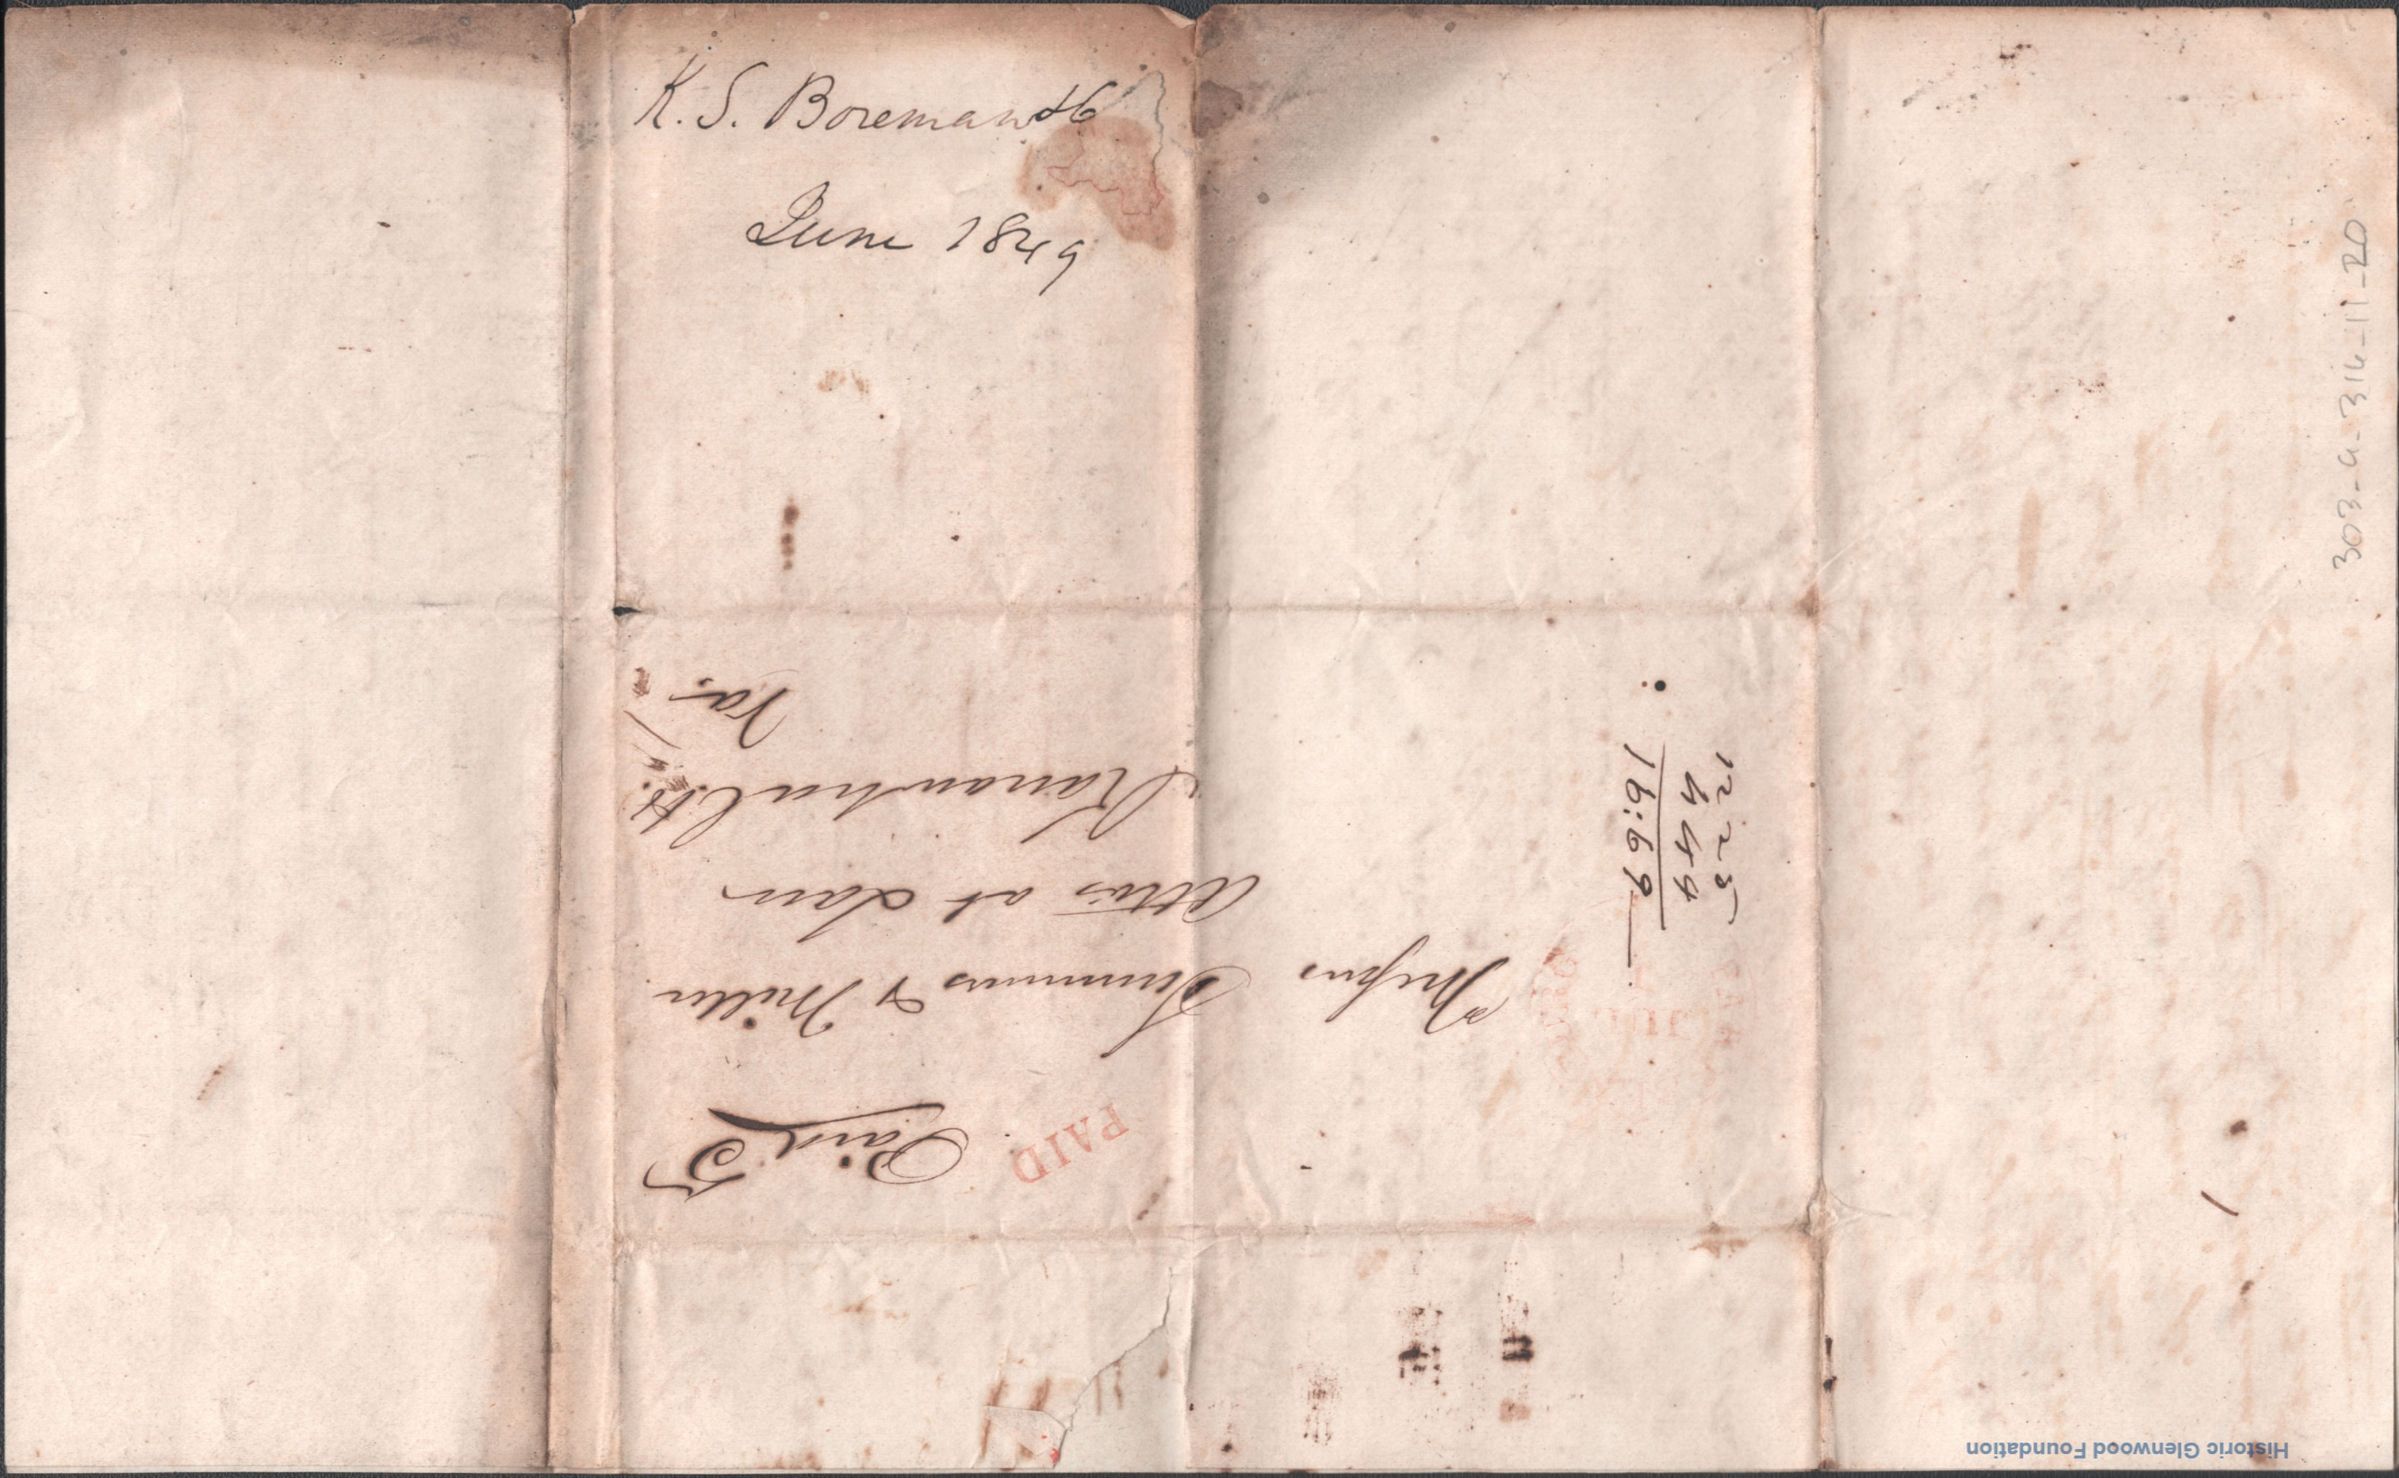 K. S. Boreman
June 1849
Paid 5
PAID
Messrs
Summers & Miller
Attos at Law
Kanawha C.H.
Va.
12 25
4 44
16:69
303-a-314-11-20
Historic Glenwood Foundation